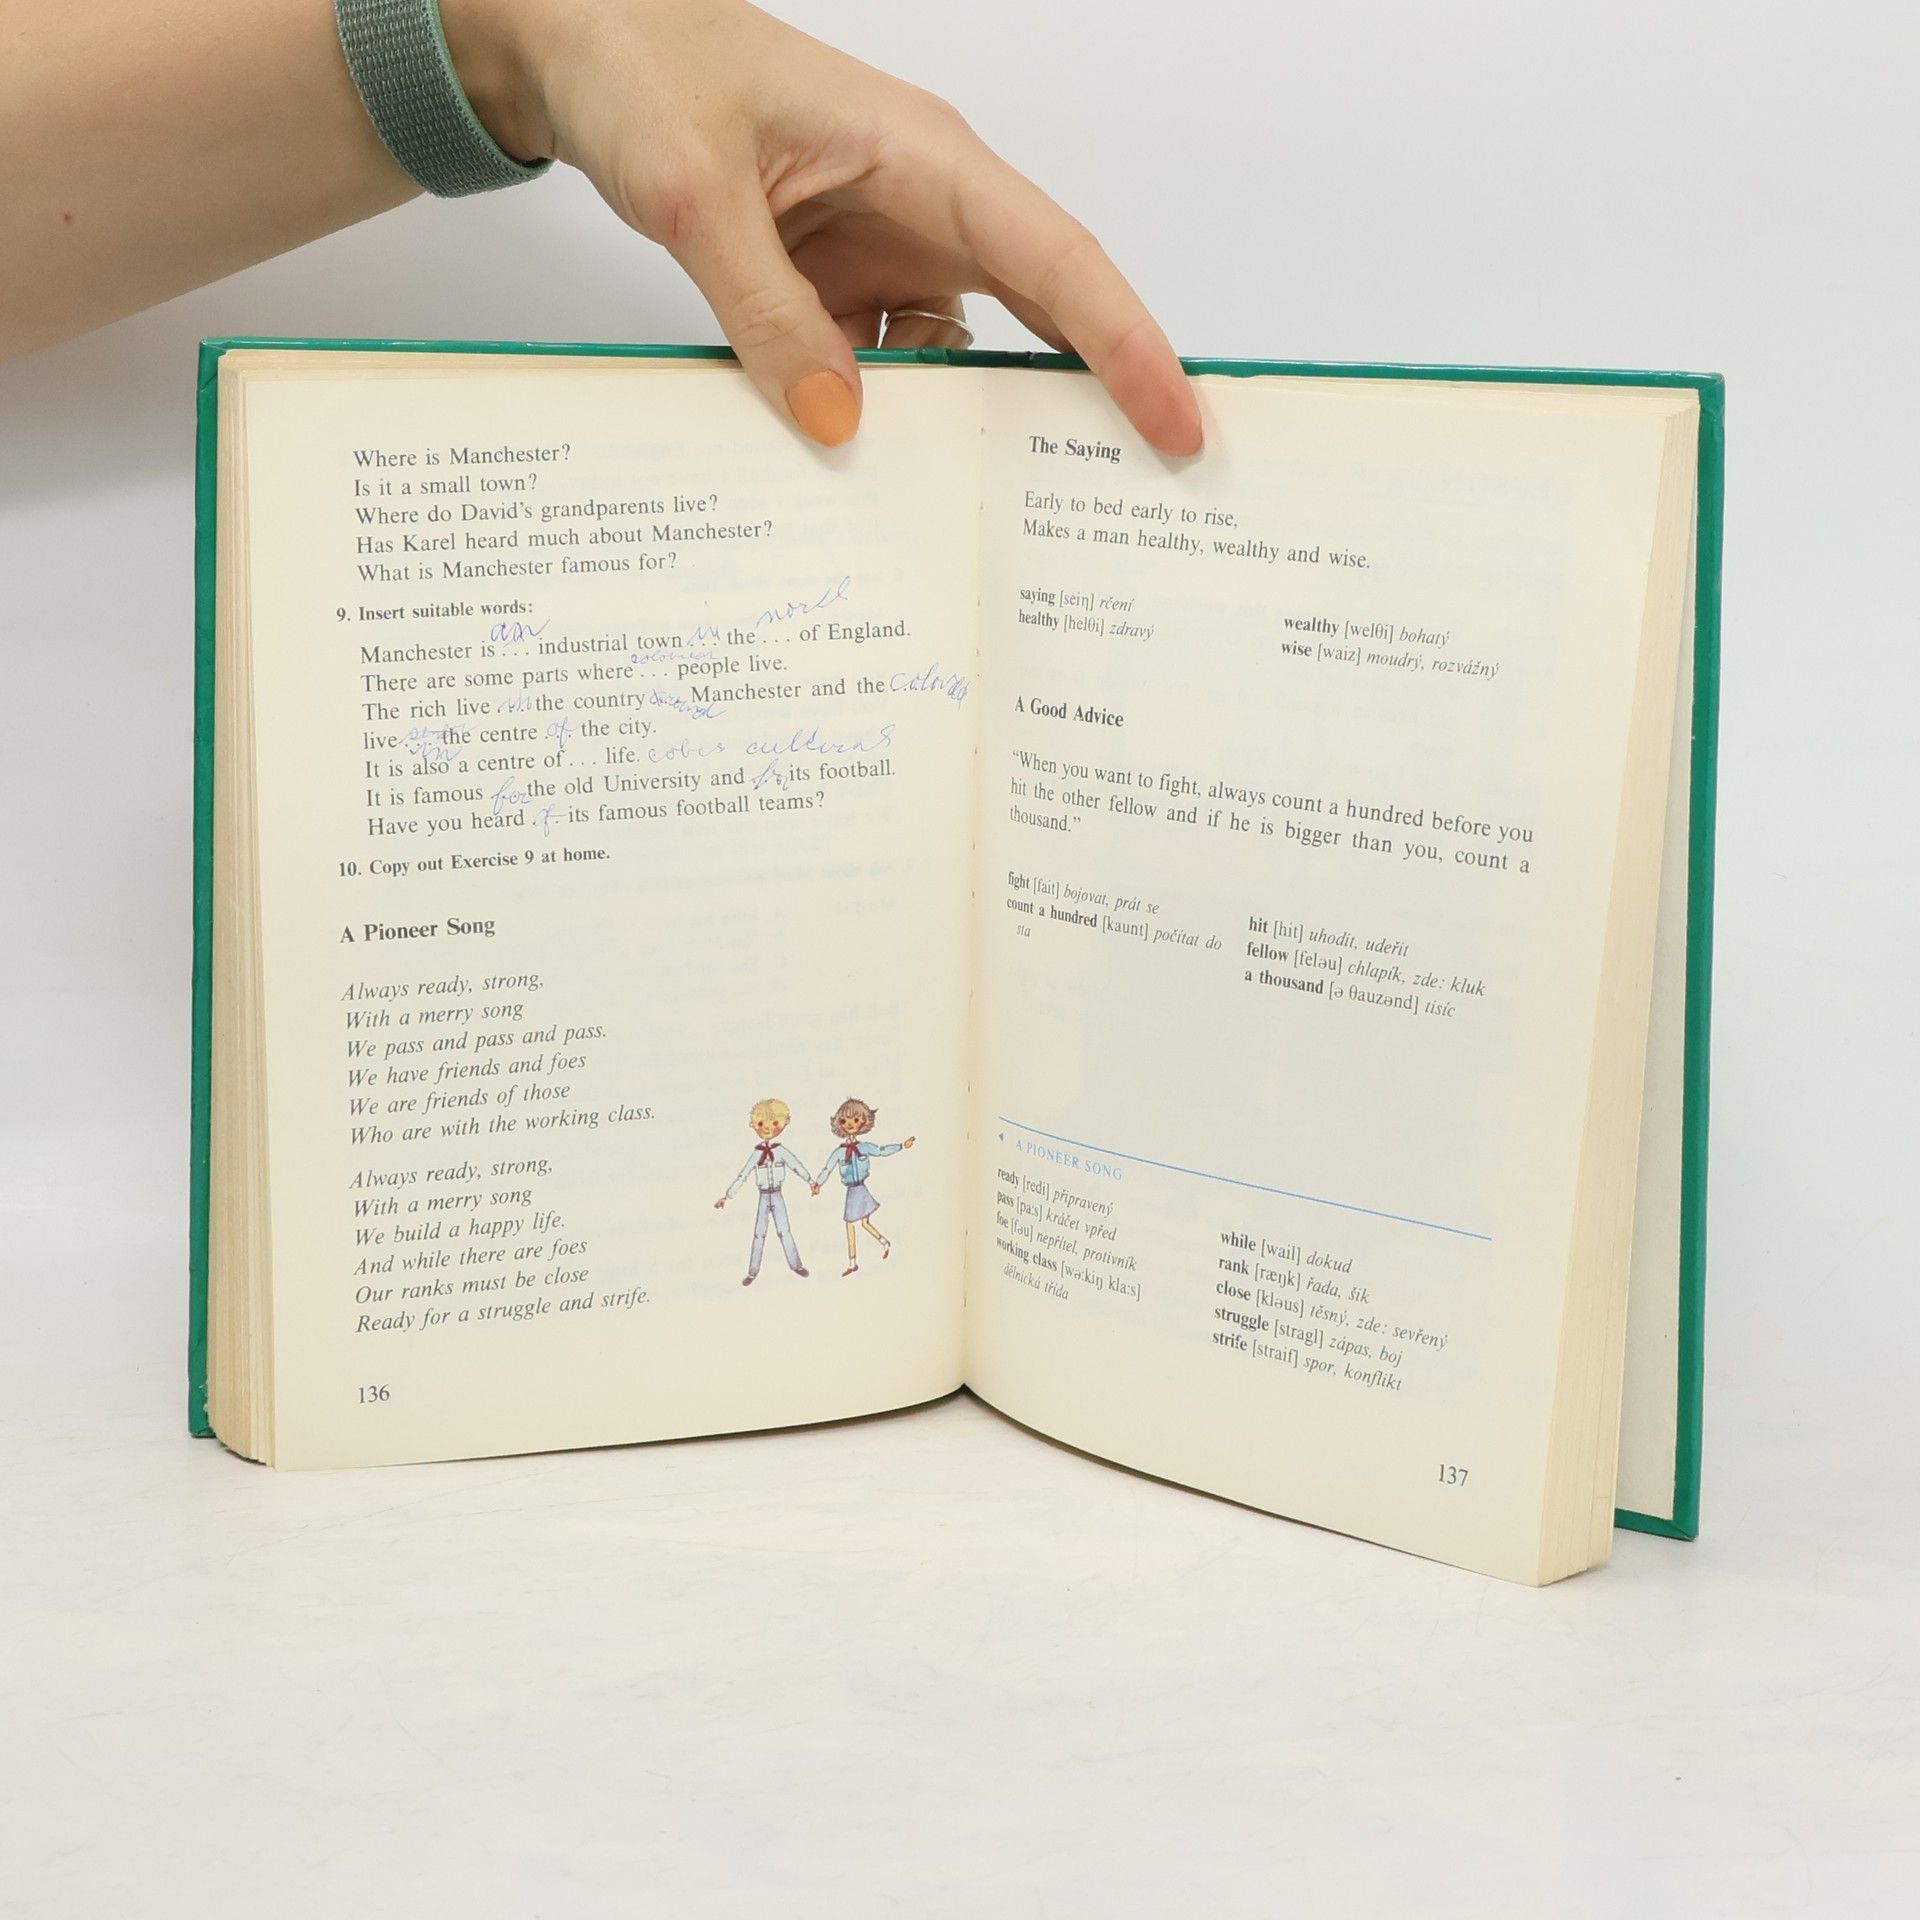 Where is Manchester?
Is it a small town?
Where do David's grandparents live?
Has Karel heard much about Manchester?
What is Manchester famous for?
9. Insert suitable words:
an in
Manchester is ... industrial town ... the ... of England.
There are some parts where ... people live.
The rich live in the country around Manchester and the
live in the centre of the city.
It is also a centre of ... life. cultural
It is famous for the old University and for its football.
Have you heard of its famous football teams?
10. Copy out Exercise 9 at home.
A Pioneer Song
Always ready, strong,
With a merry song
We pass and pass and pass.
We have friends and foes
We are friends of those
Who are with the working class.
Always ready, strong,
With a merry song
We build a happy life.
And while there are foes
Our ranks must be close
Ready for a struggle and strife.
136
The Saying
Early to bed early to rise,
Makes a man healthy, wealthy and wise.
saying [seiŋ] rčení
healthy [helθi] zdravý
wealthy [welθi] bohatý
wise [waiz] moudrý, rozvážný
A Good Advice
“When you want to fight, always count a hundred before you
hit the other fellow and if he is bigger than you, count a
thousand.”
fight [fait] bojovat, prát se
count a hundred [kaunt] počítat do
sta
hit [hit] uhodit, udeřit
fellow [feləu] chlapík, zde: kluk
a thousand [ə θauzənd] tisíc
◂ A PIONEER SONG
ready [redi] připravený
pass [pa:s] kráčet vpřed
foe [fəu] nepřítel, protivník
working class [wə:kiŋ kla:s]
dělnická třída
while [wail] dokud
rank [ræŋk] řada, šik
close [kləus] těsný, zde: sevřený
struggle [stragl] zápas, boj
strife [straif] spor, konflikt
137